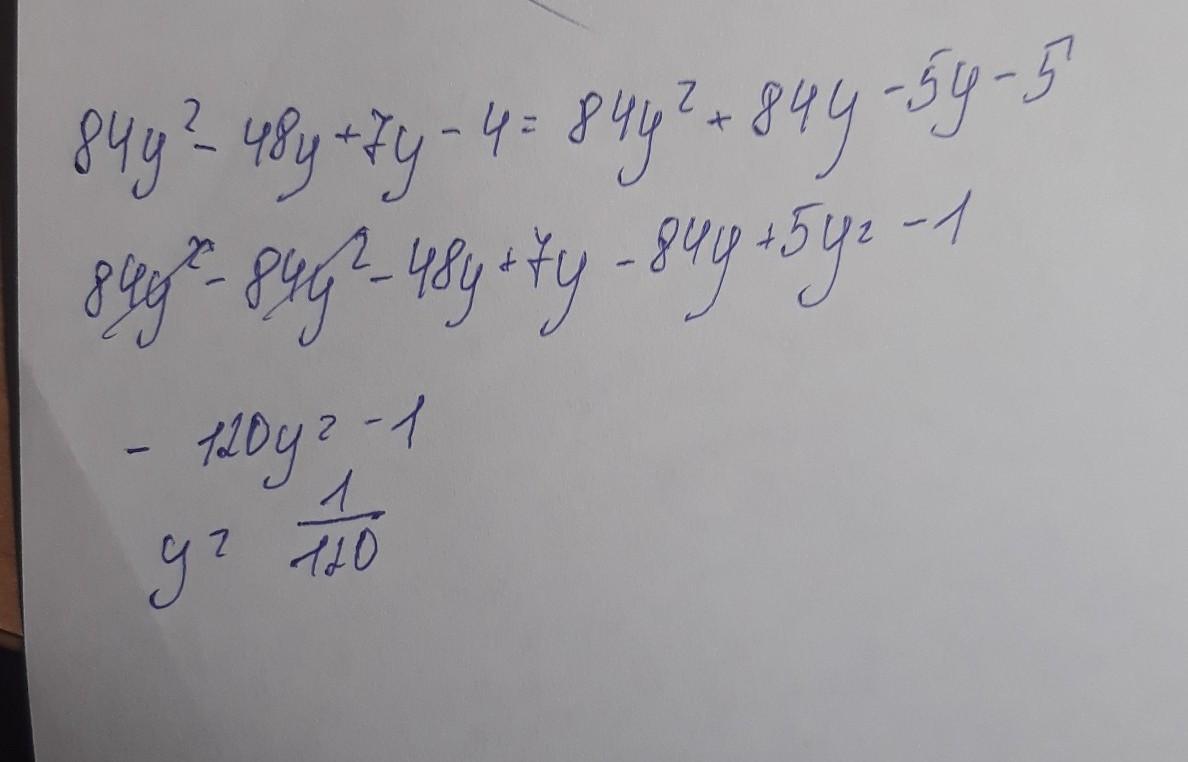 84y² - 48y + 7y - 4 = 84y² + 84y - 5y - 5
84y² - 84y² - 48y + 7y - 84y + 5y = -1
- 120y = -1
y = 1/120